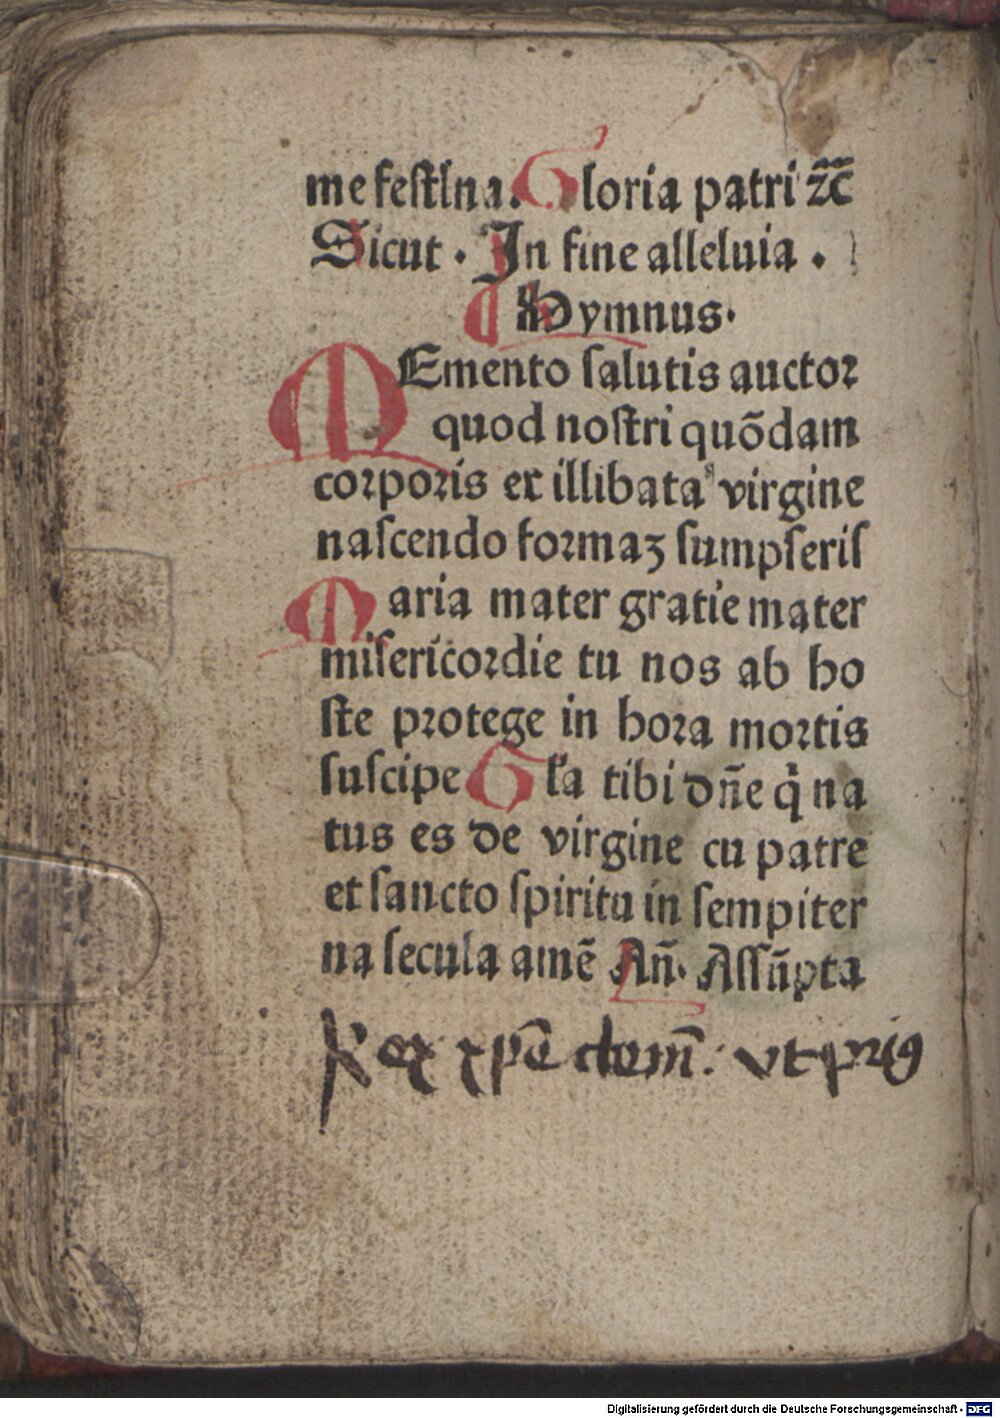 me festina. Gloria patri ⁊c̄
Sicut . In fine alleluia .
¶ Hymnus.
MEmento salutis auctor
quod nostri quōdam
corporis ex illibata virgine
nascendo formaꝫ sumpseris
Maria mater gratie mater
misericordie tu nos ab ho
ste protege in hora mortis
suscipe Gl'a tibi dn̄e q̇ na
tus es de virgine cu patre
et sancto spiritu in sempiter
na secula amē An̄. Assūpta
xp̄e ut priꝰ
Digitalisierung gefördert durch die Deutsche Forschungsgemeinschaft - DFG